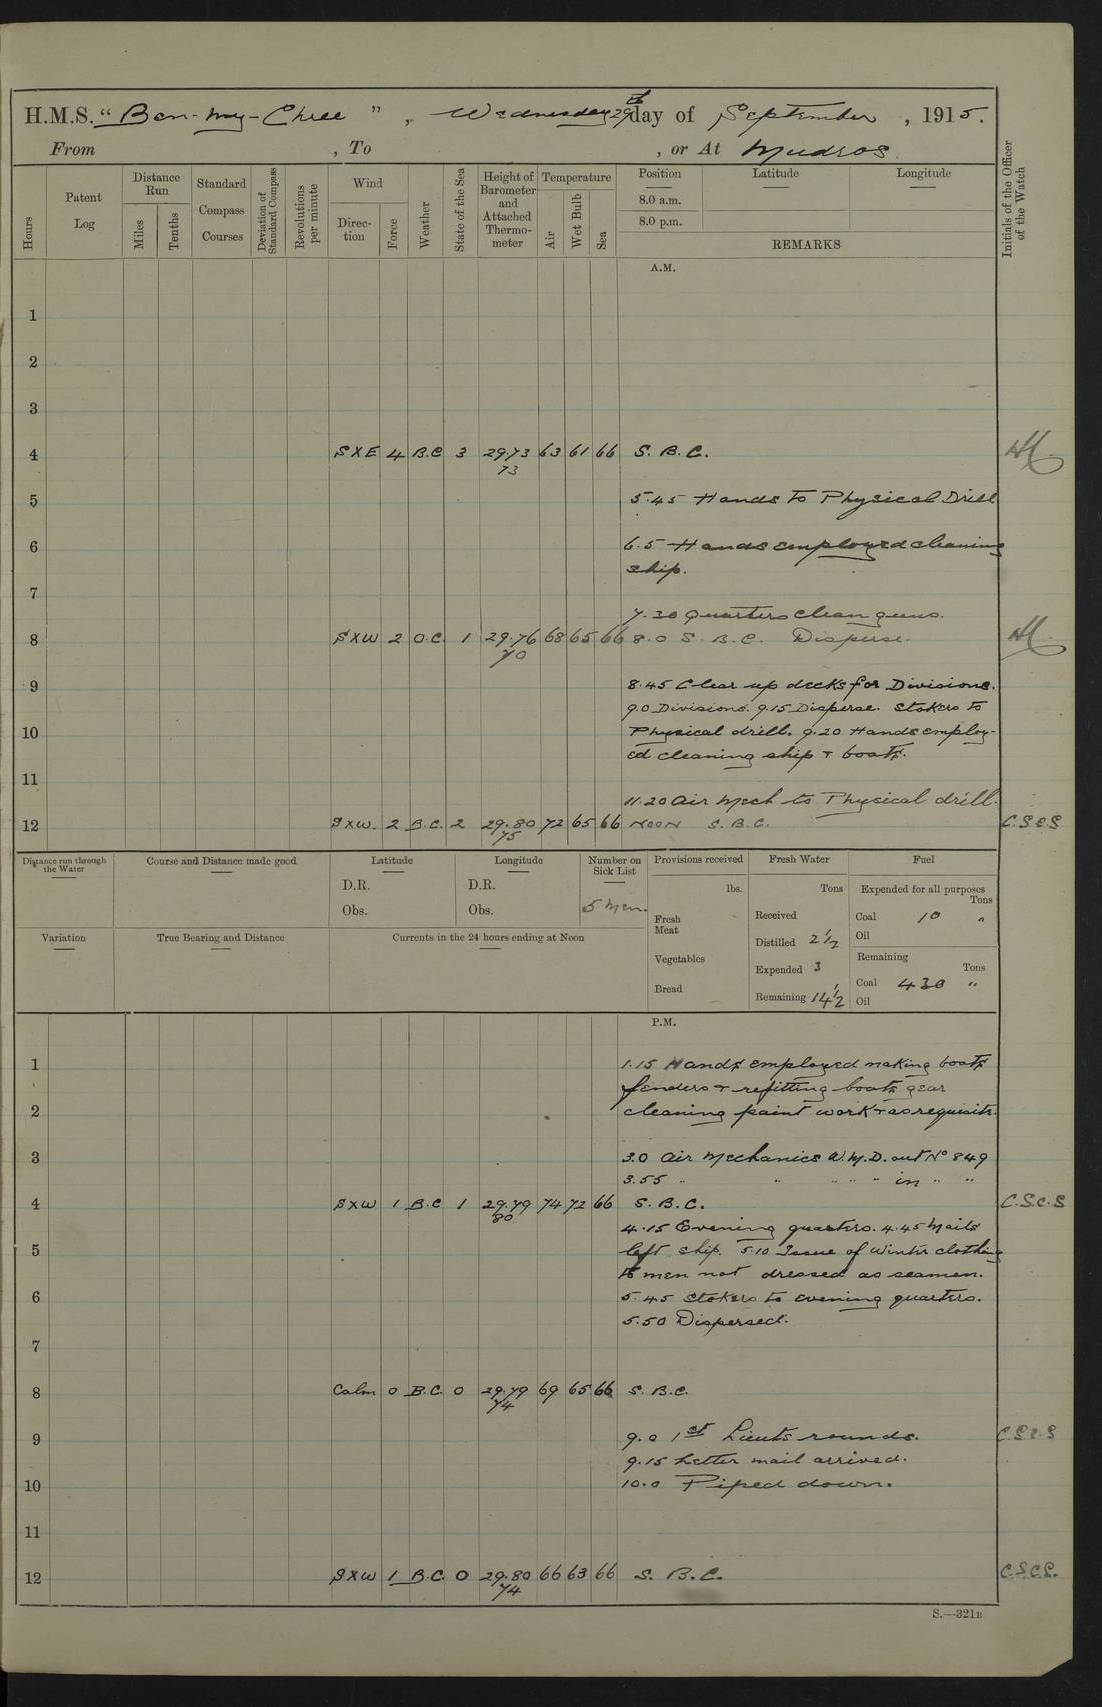 H.M.S. " Ben-my-Chree " , Wednesday 29th day of September , 1915.
From , To , or At Mudros.
Hours
Patent Log
Distance Run
Miles
Tenths
Standard Compass Courses
Deviation of Standard Compass
Revolutions per minute
Wind
Direction
Force
Weather
State of the Sea
Height of Barometer and Attached Thermometer
Temperature
Air
Wet Bulb
Sea
Position
8.0 a.m.
8.0 p.m.
Latitude
Longitude
REMARKS
Initials of the Officer of the Watch
A.M.
1
2
3
4 SXE 4 B.C 3 29.73 63 61 66 S. B. C.
73
5 5.45 Hands to Physical Drill
6 6.5 Hands employed cleaning
ship.
7
7.30 Quarters clean guns.
8 SXW 2 O.C. 1 29.76 68 65 66 8.0 S. B. C. Disperse.
70
9 8.45 Clear up decks for Divisions.
9.0 Divisions. 9.15 Disperse. Stokers to
10 Physical drill. 9.20 Hands employ-
ed cleaning ship + boats.
11
11.20 Air Mech to Physical drill.
12 SXW. 2 B.C. 2 29.80 72 65 66 NOON S.B.C. C.S.C.S
75
Distance run through the Water
Course and Distance made good
Latitude
D.R.
Obs.
Longitude
D.R.
Obs.
Number on Sick List
5 Men.
Provisions received
lbs.
Fresh Meat
Vegetables
Bread
Fresh Water
Tons
Received
Distilled 2 1/2
Expended 3
Remaining 14 1/2
Fuel
Expended for all purposes
Tons
Coal 10 "
Oil
Remaining
Tons
Coal 430 "
Oil
Variation
True Bearing and Distance
Currents in the 24 hours ending at Noon
P.M.
1 1.15 Hands employed making boats
fenders + refitting boats gear
2 cleaning paint work + as requisite.
3 3.0 Air Mechanics W.M.D. out No 849
3.55 " " " " " in " "
4 SXW 1 B.C 1 29.79 74 72 66 S. B. C. C.S.C.S
80
4.15 Evening quarters. 4.45 Mails
5 left ship. 5.10 Issue of winter clothing
to men not dressed as seamen.
6 5.45 Stokers to evening quarters.
5.50 Dispersed.
7
8 Calm 0 B.C. 0 29.79 69 65 66 S. B.C.
74
9 9.0 1st Lieuts rounds. C.S.C.S
9.15 Letter mail arrived.
10 10.0 Piped down.
11
12 SXW 1 B.C. 0 29.80 66 63 66 S. B.C. C.S.C.S.
74
S.—321B.